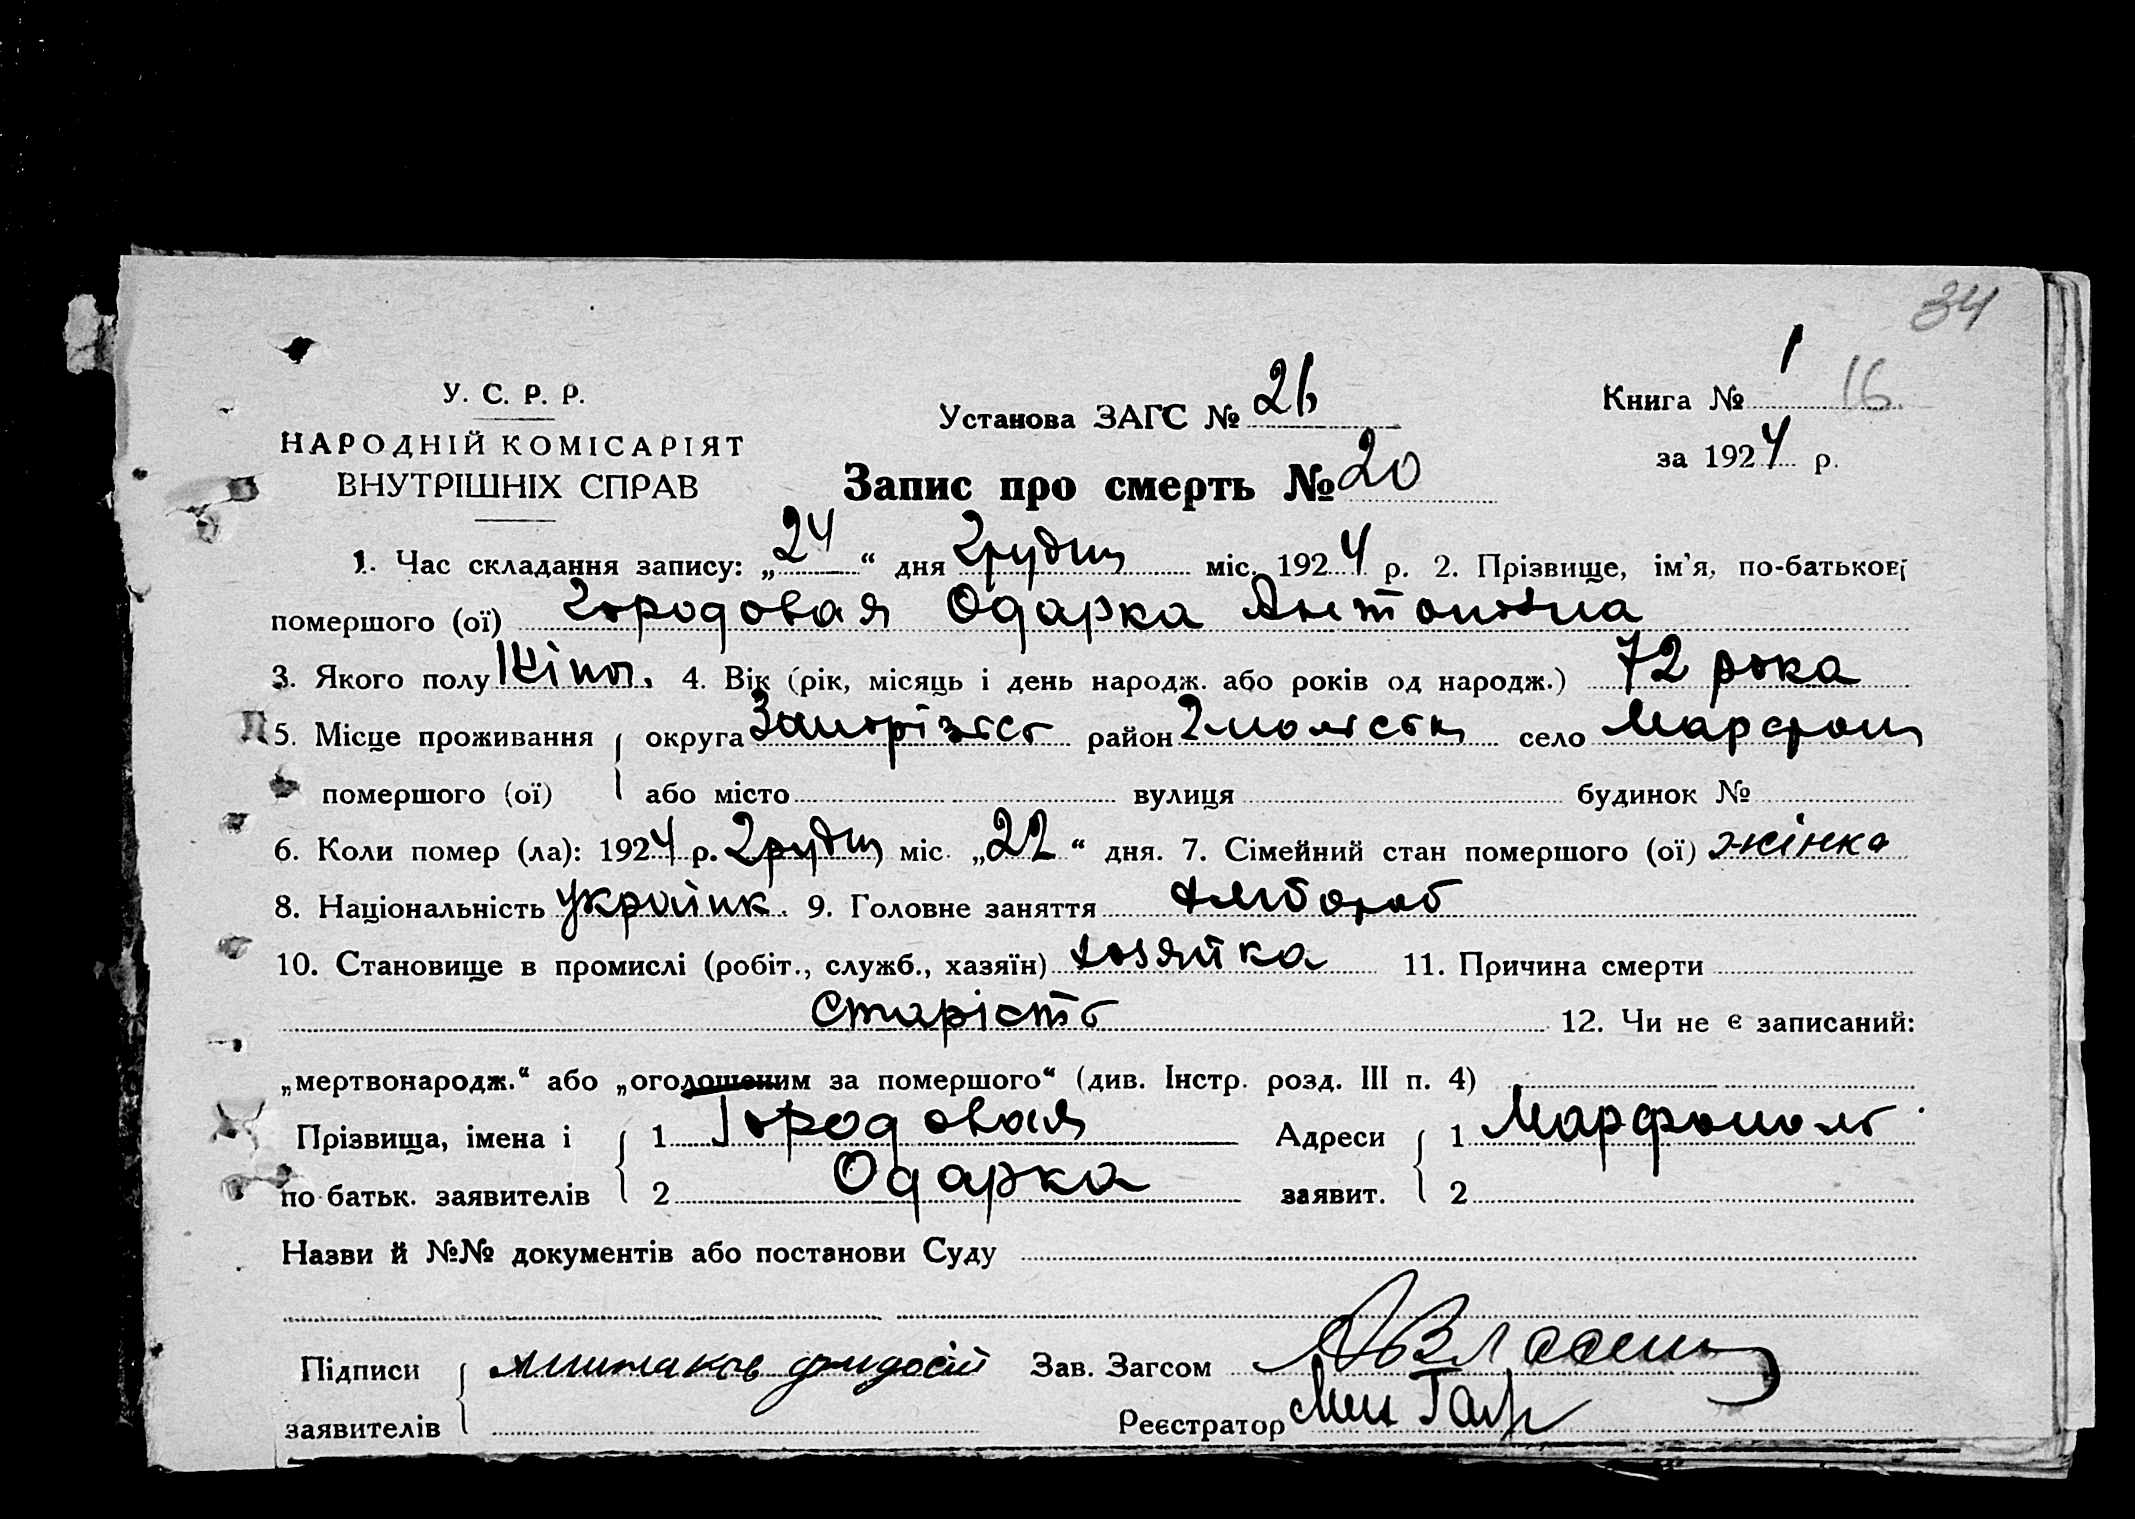 34
У. С. Р. Р.
НАРОДНІЙ КОМІСАРІЯТ
ВНУТРІШНІХ СПРАВ
Установа ЗАГС № 26
Книга № 1 16
за 1924 р.
Запис про смерть № 20
1. Час складання запису: „24“ дня Грудня міс. 1924 р. 2. Прізвище, ім'я, по-батькові
помершого (ої) Городовая Одарка Антоновна
3. Якого полу Жіноч. 4. Вік (рік, місяць і день народж. або років од народж.) 72 рока
5. Місце проживання округа Запорізьк район Гпольськ село Марфоп
помершого (ої) або місто вулиця будинок №
6. Коли помер (ла): 1924 р. Грудня міс. „22“ дня. 7. Сімейний стан помершого (ої) жінка
8. Національність україн̄к. 9. Головне заняття хлібороб
10. Становище в промислі (робіт., служб., хазяїн) хозяйка 11. Причина смерти
Старість 12. Чи не є записаний:
„мертвонародж.“ або „оголошеним за помершого“ (див. Інстр. розд. III п. 4)
Прізвища, імена і 1 Городовая Адреси 1 Марфополь
по батьк. заявителів 2 Одарка заявит. 2
Назви й №№ документів або постанови Суду
Підписи Зав. Загсом
заявителів Реєстратор